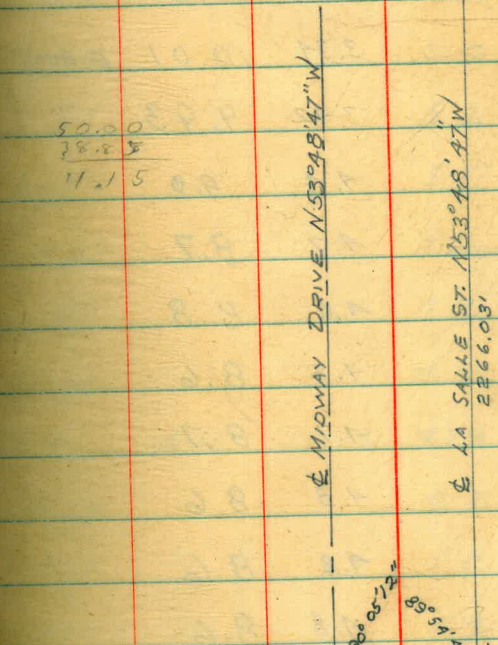 50.00
38.85
11.15
℄ MIDWAY DRIVE N53°48'47"W
℄ LA SALLE ST. N53°48'47"W
2266.03'